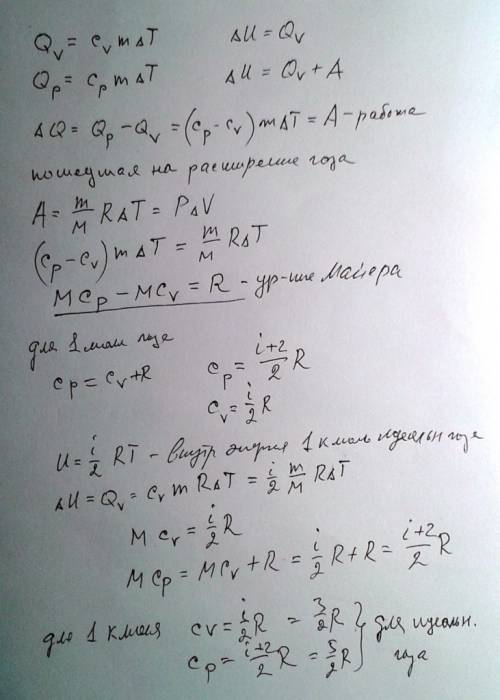 Qv = cv m ΔT   ΔU = Qv
Qp = cp m ΔT   ΔU = Qv + A
ΔQ = Qp - Qv = (cp - cv) m ΔT = A - работа
пошедшая на расширение газа
A = m/M R ΔT = P ΔV
(cp - cv) m ΔT = m/M R ΔT
M cp - M cv = R - ур-ние Майера
для 1 моля газа
cp = cv + R   cp = i+2/2 R
cv = i/2 R
U = i/2 RT - внутр энергия 1 кмоль идеальн газа
ΔU = Qv = cv m R ΔT = i/2 m/M R ΔT
M cv = i/2 R
M cp = M cv + R = i/2 R + R = i+2/2 R
для 1 кмоля cv = i/2 R = 3/2 R } для идеальн.
cp = i+2/2 R = 5/2 R } газа